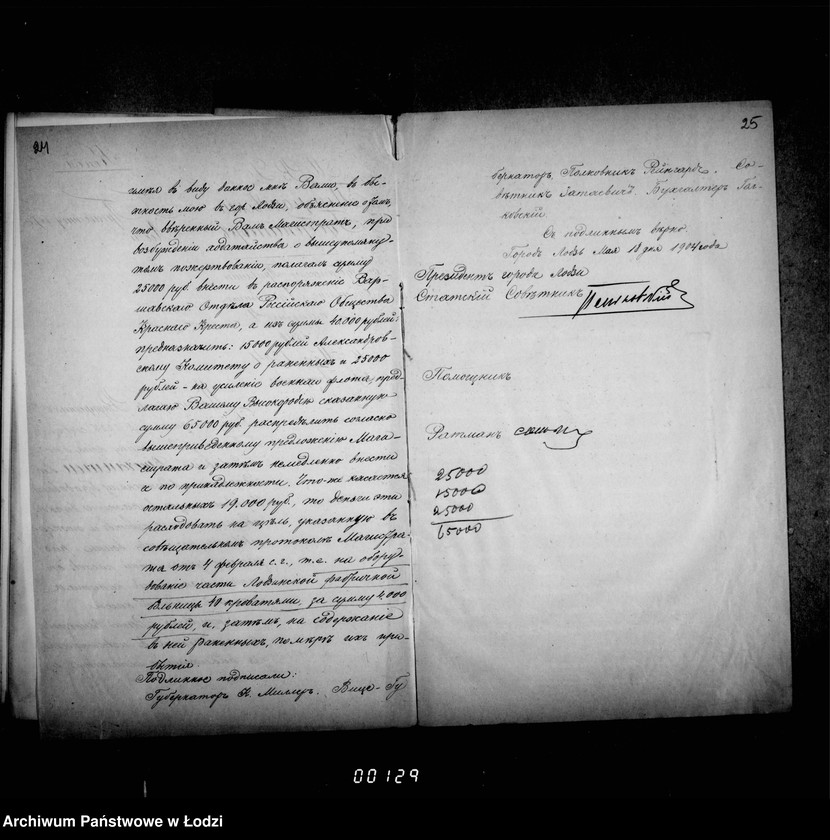 24
имѣя въ виду данное мнѣ Вами, въ быт-
ность мою въ гор. Лодзи, объясненіе о томъ,
что ввѣренный Вамъ Магистратъ, при
возбужденіи ходатайства о вышеупомяну-
томъ пожертвованіи, полагалъ сумму
25000 руб. внести въ распоряженіе Вар-
шавскаго Отдѣла Россійскаго Общества
Краснаго Креста, а изъ суммы 40.000 рублей:
предназначить: 15000 рублей Александров-
скому Комитету о раненныхъ и 25000
рублей - на усиленіе военнаго флота, пред-
лагаю Вашему Высокородію сказанную
сумму 65000 руб. распредѣлить согласно
вышеприведенному предложенію Маги-
страта и затѣмъ немедленно внести
ее по принадлежности. Что-же касается
остальныхъ 19.000 руб., то деньги эти
расходовать на цѣль, указанную въ
совѣщательномъ протоколѣ Магистра-
та отъ 4 февраля с. г., т. е. на обору-
дованіе части Лодзинской фабричной
больницы 40 кроватями, за сумму 4.000
рублей, и, затѣмъ, на содержаніе
въ ней раненныхъ, по мѣрѣ ихъ при-
бытія.
Подлинное подписали:
Губернаторъ К. Миллеръ. Вице-Гу
25
бернаторъ, Полковникъ Рейнгардъ. Со-
вѣтникъ Затаевичъ. Бухгалтеръ
ковскій.
Съ подлиннымъ вѣрно.
Городъ Лодзь Мая 18 дня 1904 года
Президентъ города Лодзи
Статскій Совѣтникъ Пеньковскій
Помощникъ
Ратманъ
25000
15000
25000
65000
00129
Archiwum Państwowe w Łodzi